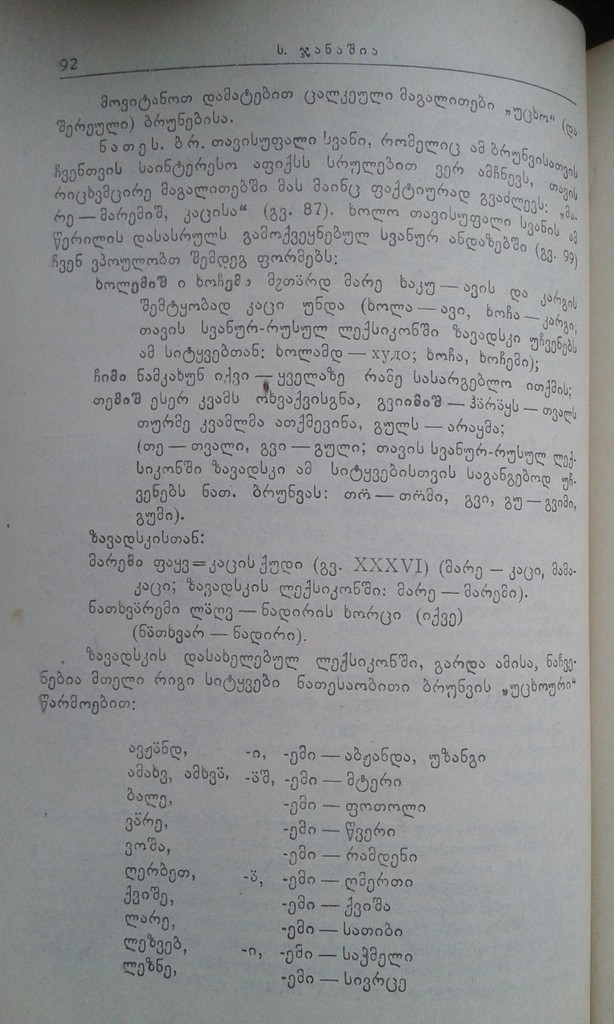 92
ს. ჯანაშია
მოვიტანოთ დამატებით ცალკეული მაგალითები „უცხო“ (და
შერეული) ბრუნებისა.
ნათეს. ბრ. თავისუფალი სვანი, რომელიც ამ ბრუნვისათვის
ჩვენთვის საინტერესო აფიქსს სრულებით ვერ ამჩნევს, თავის
რიცხვმცირე მაგალითებში მას მაინც ფაქტიურად გვაძლევს: „მა-
რე — მარემიშ, კაცისა“ (გვ. 87). ხოლო თავისუფალი სვანის ამ
წერილის დასასრულს გამოქვეყნებულ სვანურ ანდაზებში (გვ. 99)
ჩვენ ვპოულობთ შემდეგ ფორმებს:
ხოლემიშ ი ხოჩემ მჷთარდ მარე ხაკუ — ავის და კარგის
შემტყობად კაცი უნდა (ხოლა — ავი, ხოჩა — კარგი;
თავის სვანურ-რუსულ ლექსიკონში ზავადსკი უჩვენებს
ამ სიტყვებთან: ხოლამდ — худо; ხოჩა, ხოჩემი);
ჩიმი ნამკახუნ იქვი — ყველაზე რამე სასარგებლო ითქმის;
თემიშ ესერ კვამს ოხვაქვისგნა, გვიიმიშ — ჰარაყს — თვალს
თურმე კვამლმა ათქმევინა, გულს — არაყმა;
(თე — თვალი, გვი — გული; თავის სვანურ-რუსულ ლექ-
სიკონში ზავადსკი ამ სიტყვებისთვის საგანგებოდ უჩ-
ვენებს ნათ. ბრუნვას: თო̈ — თო̈მი, გვი, გუ — გვიმი,
გუმი).
ზავადსკისთან:
მარემი ფაყვ = კაცის ქუდი (გვ. XXXVI) (მარე — კაცი, მამა-
კაცი; ზავადსკის ლექსიკონში: მარე — მარემი).
ნათხვა̈რემი ლა̈ღვ — ნადირის ხორცი (იქვე)
(ნა̈თხვარ — ნადირი).
ზავადსკის დასახელებულ ლექსიკონში, გარდა ამისა, ნაჩვე-
ნებია მთელი რიგი სიტყვები ნათესაობითი ბრუნვის „უცხოური“
წარმოებით:
ავჟა̈ნდ, -ი, -ემი — აბჟანდა, უზანგი
ამახვ, ამხვა̈, -ა̈შ, -ემი — მტერი
ბალე, -ემი — ფოთოლი
ვა̈რე, -ემი — წვერი
ვოშა, -ემი — რამდენი
ღერბეთ, -ა̈, -ემი — ღმერთი
ქვიშე, -ემი — ქვიშა
ლარე, -ემი — სათიბი
ლეზვებ, -ი, -ემი — საჭმელი
ლეზნე, -ემი — სივრცე